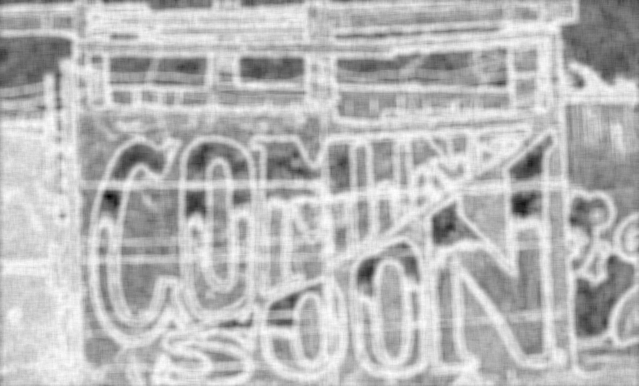 COMING
SOON